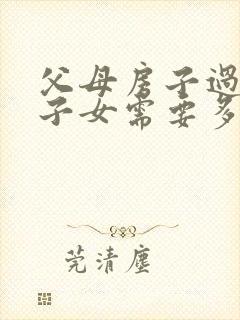 父母房子過
子女需要多
莞清塵